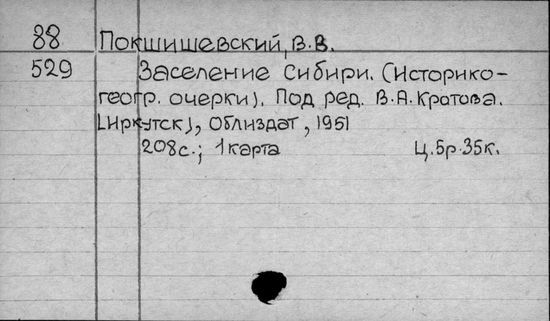 88 Покшишевский, В.В.
529 Заселение Сибири. (Историко-
геогр. очерки). Под ред. В.А. Кротова.
[Иркутск], Облиздат, 1951
208с.; 1 карта Ц. 5р. 35к.